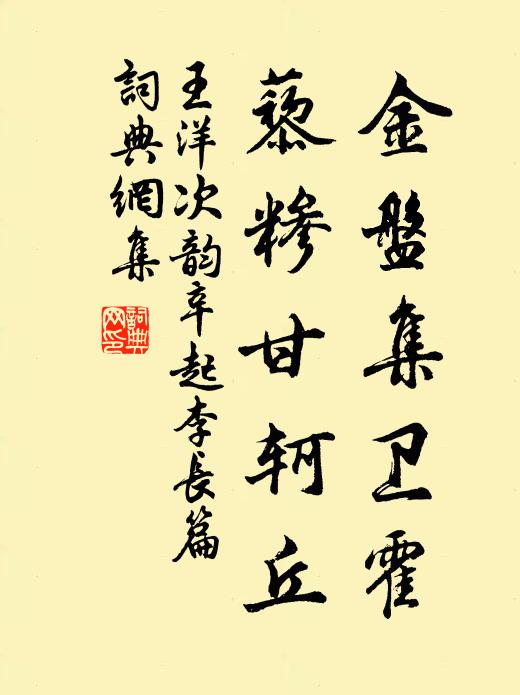 金盤集卫霍
藜糝甘轲丘
王洋次韵辛起李長篇
詞典網集
詞典网印